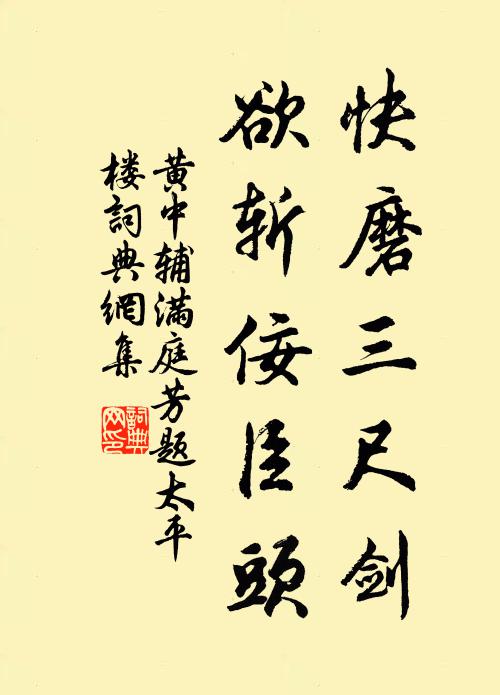 快磨三尺剑
欲斩佞臣頭
黄中辅满庭芳题太平
楼詞典網集
詞典
网印